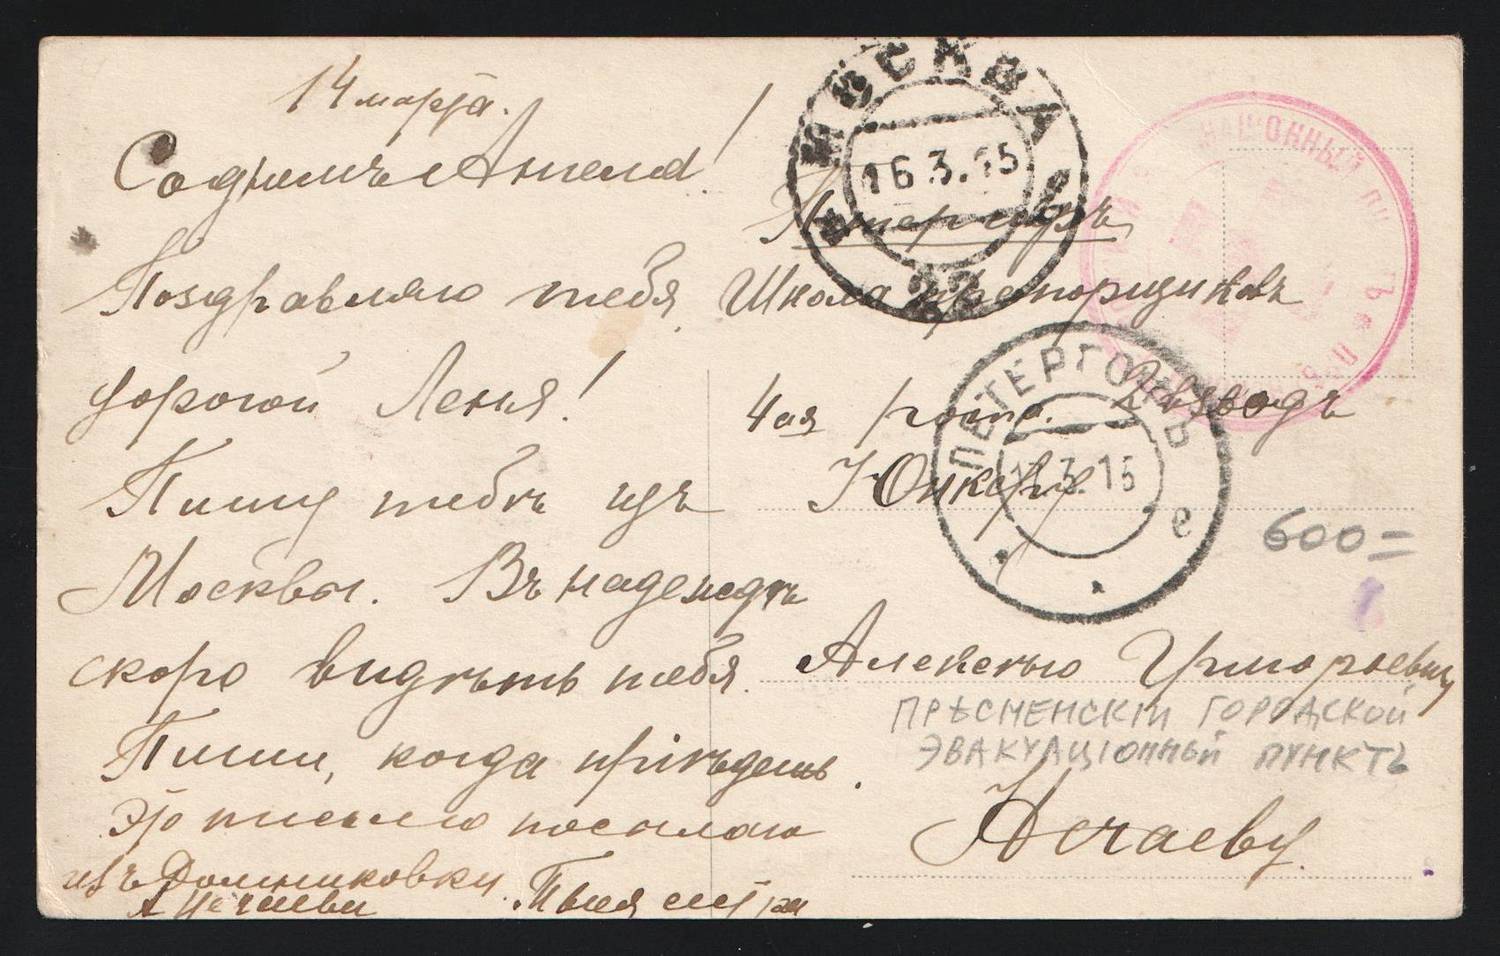 14 марта.
Съ днемъ Ангела!
Поздравляю тебя
дорогой Леня!
Пишу тебѣ изъ
Москвы. Въ надеждѣ
скоро видѣть тебя.
Пиши, когда пріѣдешь.
Это письмо посылаю
изъ Домниковки.
А Нечаева Твоя сестра
МОСКВА
16.3.15
22
Петергофъ
Школа Прапорщиковъ
4ая рота. взводъ
Юнкеру
ПЕТЕРГОФЪ
3.15
е
600=
Алексѣю Григорьевичу
ПРѢСНЕНСКІЙ ГОРОДСКОЙ
ЭВАКУАЦІОННЫЙ ПУНКТЪ
Нечаеву.